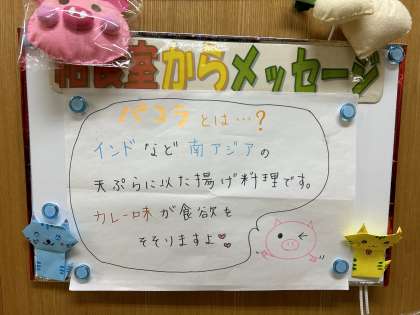 給食室からメッセージ
パコラとは…?
インドなど南アジアの
天ぷらに似た揚げ料理です。
カレー味が食欲を
そそりますよ